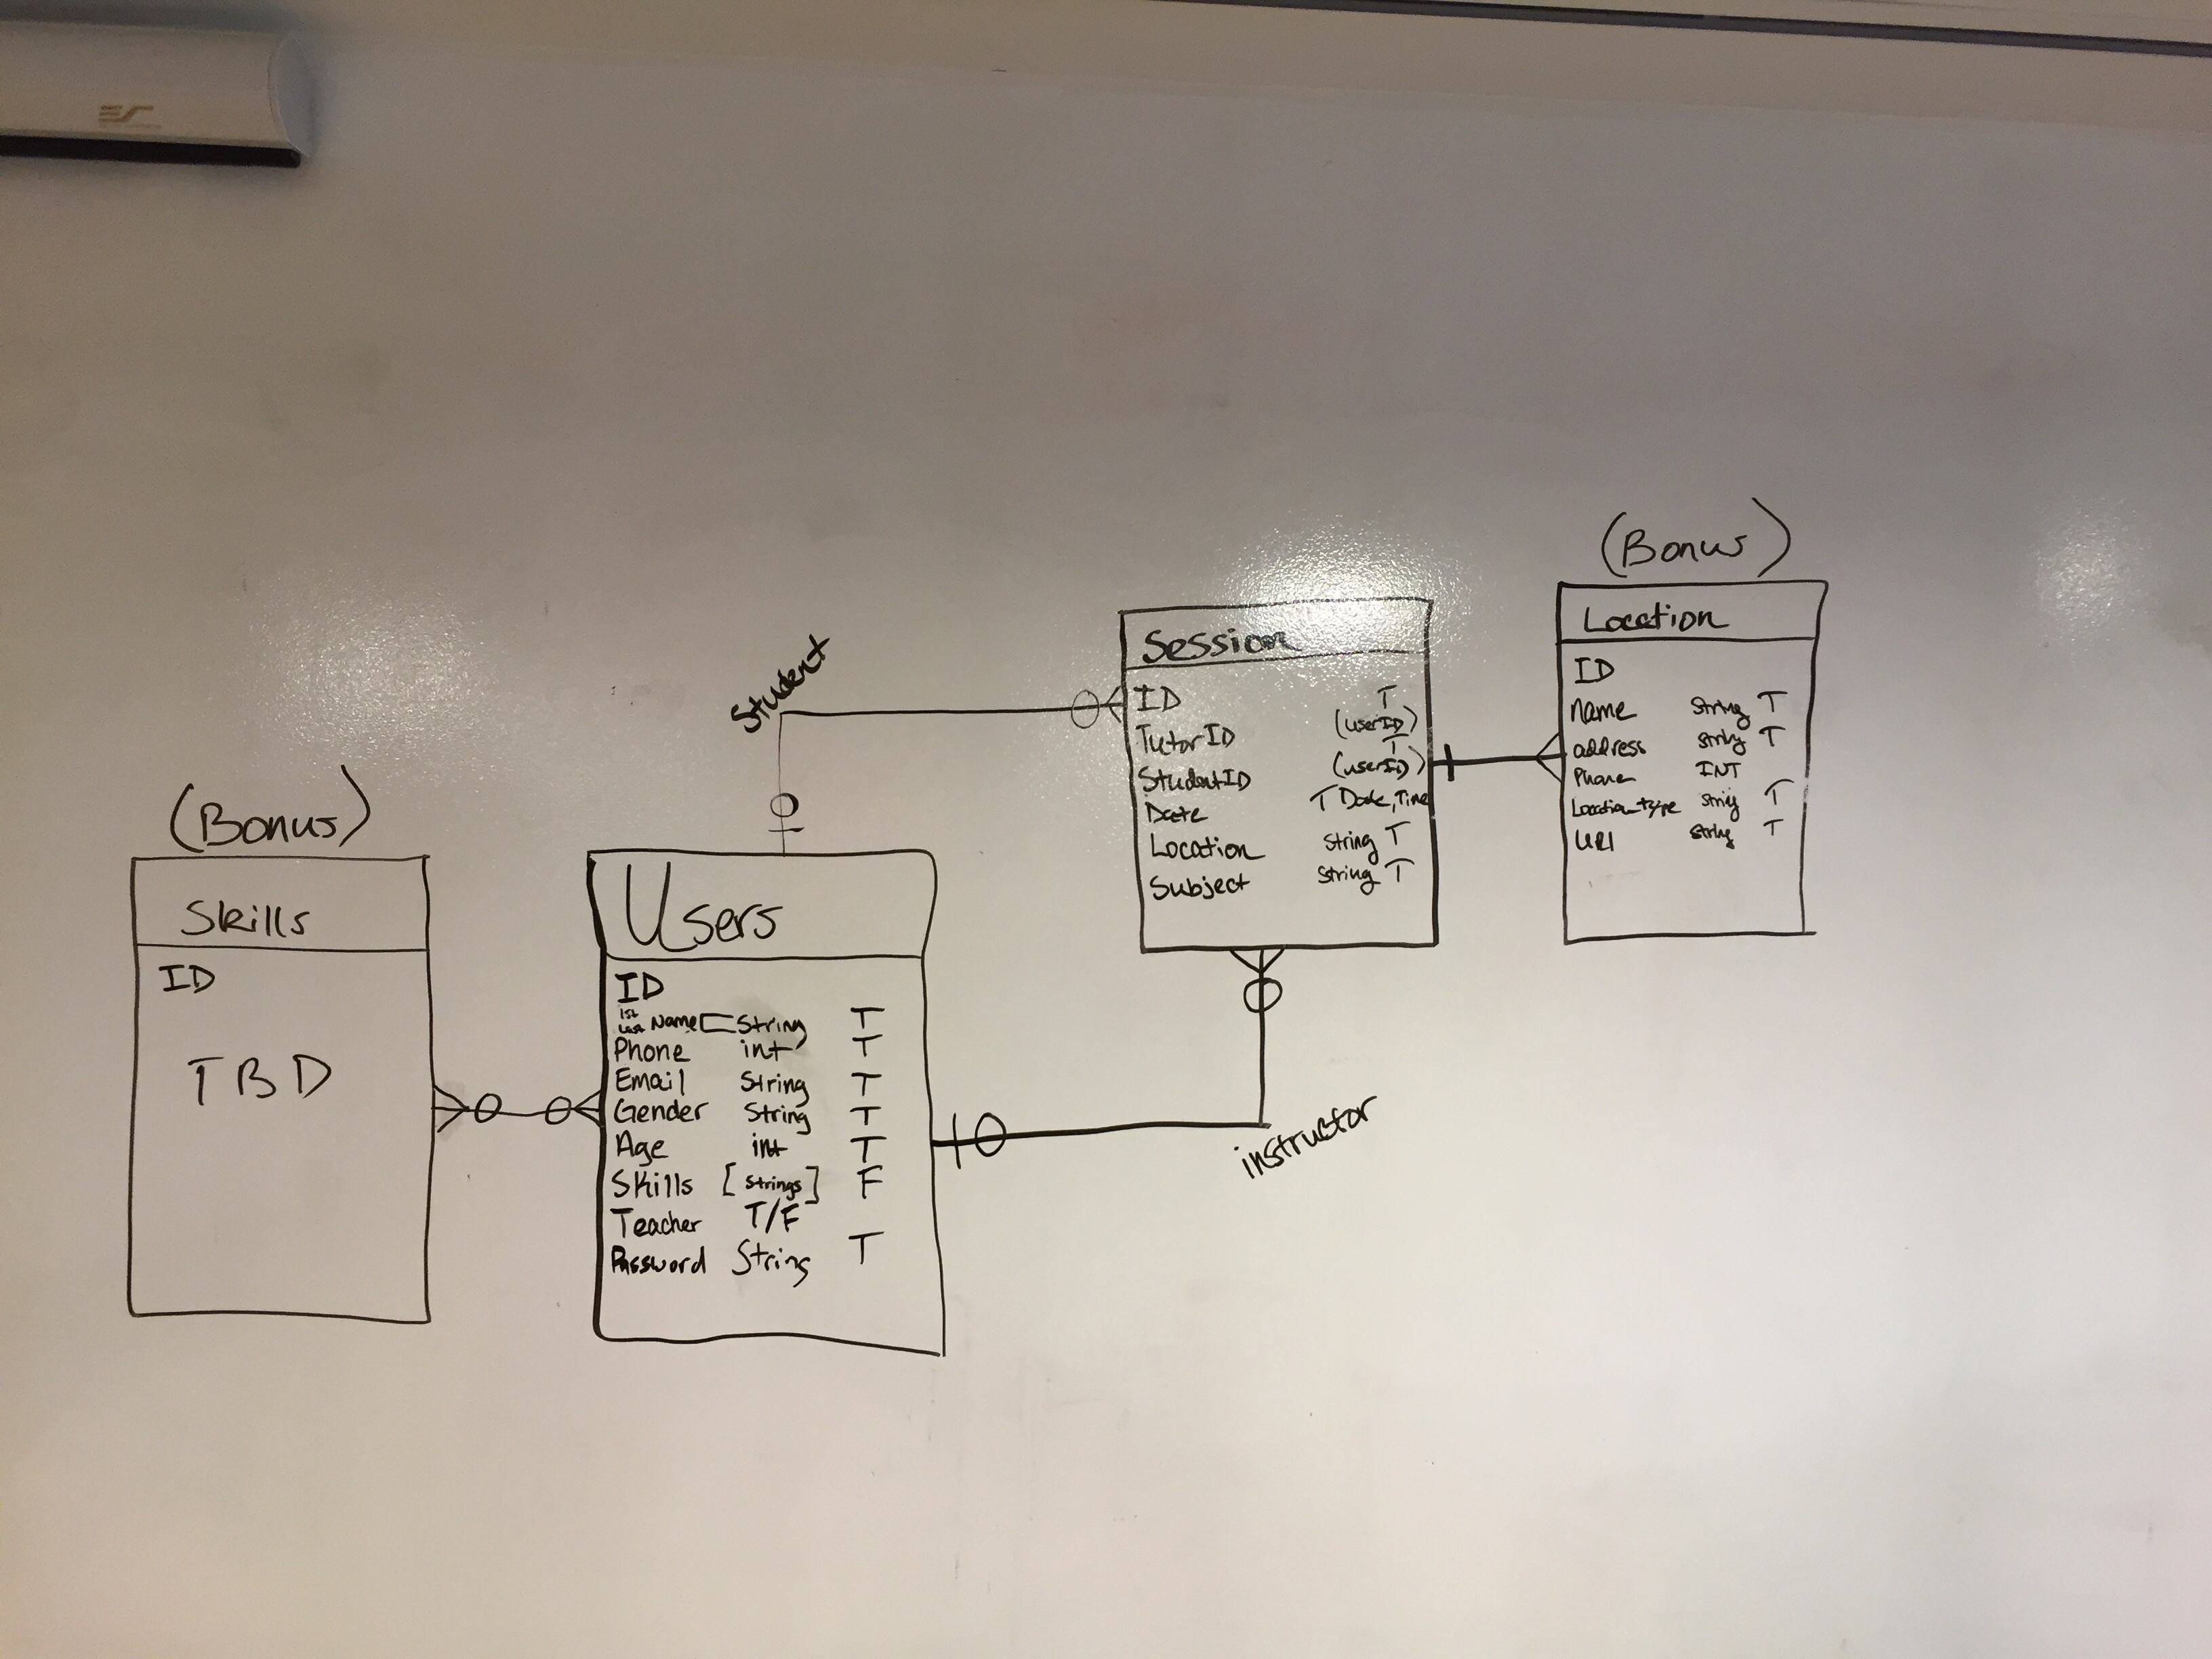 ES
(Bonus)
Skills
ID
TBD
Student
Users
ID
1st
Last Name String T
Phone int T
Email String T
Gender String T
Age int T
Skills [Strings] F
Teacher T/F
Password String T
instructor
Session
ID T
TutorID (userID)
T
StudentID (userID)
Date T Date, Time
Location String T
Subject String T
(Bonus)
Location
ID
Name String T
address String T
Phone INT
Location_type String T
URI String T